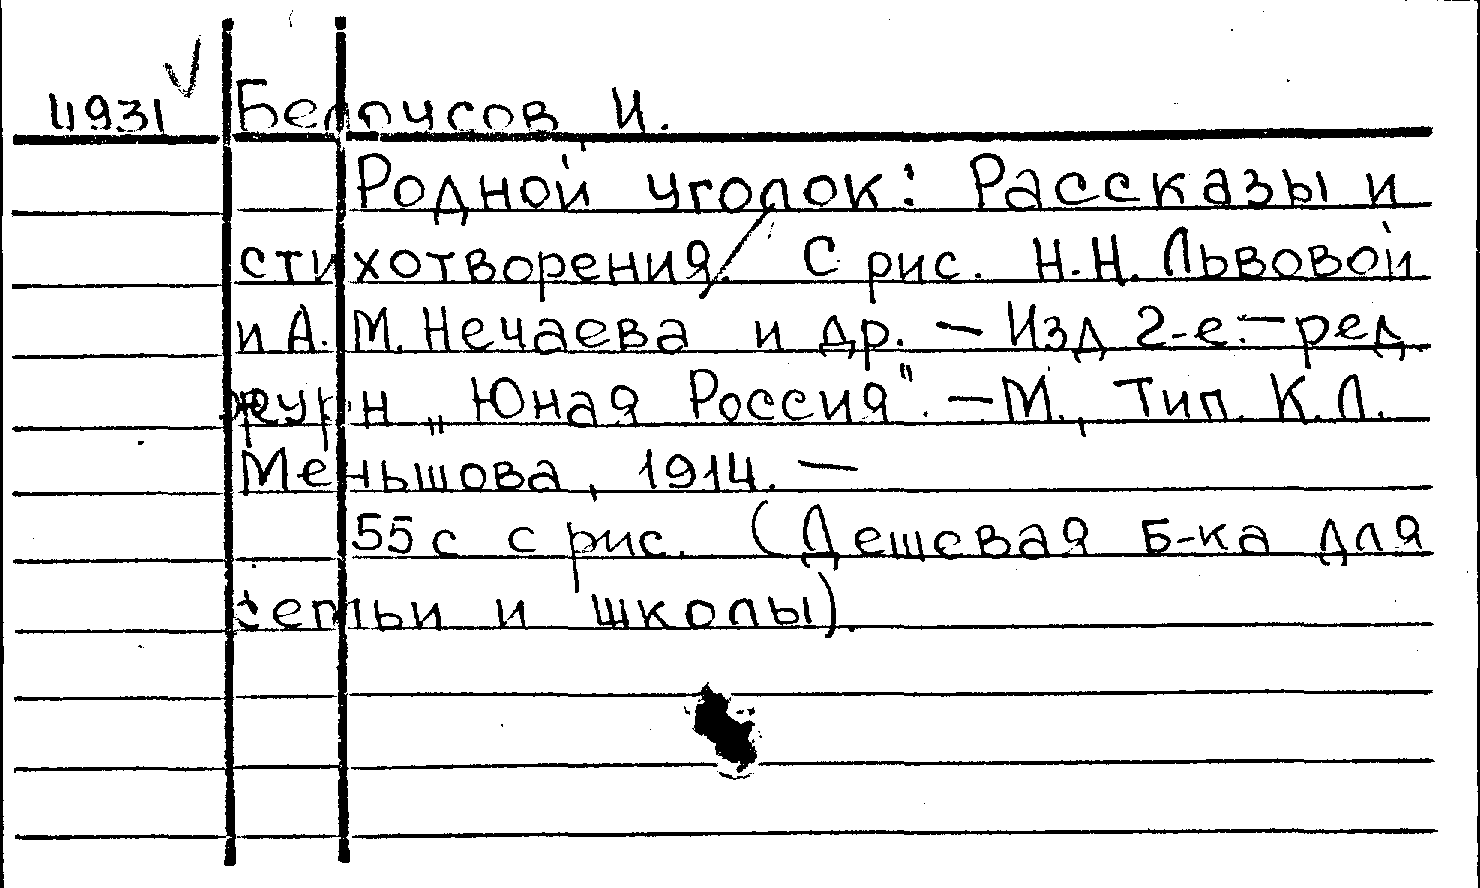 4931 Белоусов И.
Родной уголок: Рассказы и
стихотворения/. С рис. Н.Н. Львовой
и А.М. Нечаева и др. — Изд 2-е. — ред.
журн „Юная Россия". — М., Тип. К.Л.
Меньшова, 1914. —
55 с с рис. (Дешевая Б-ка для
семьи и школы).